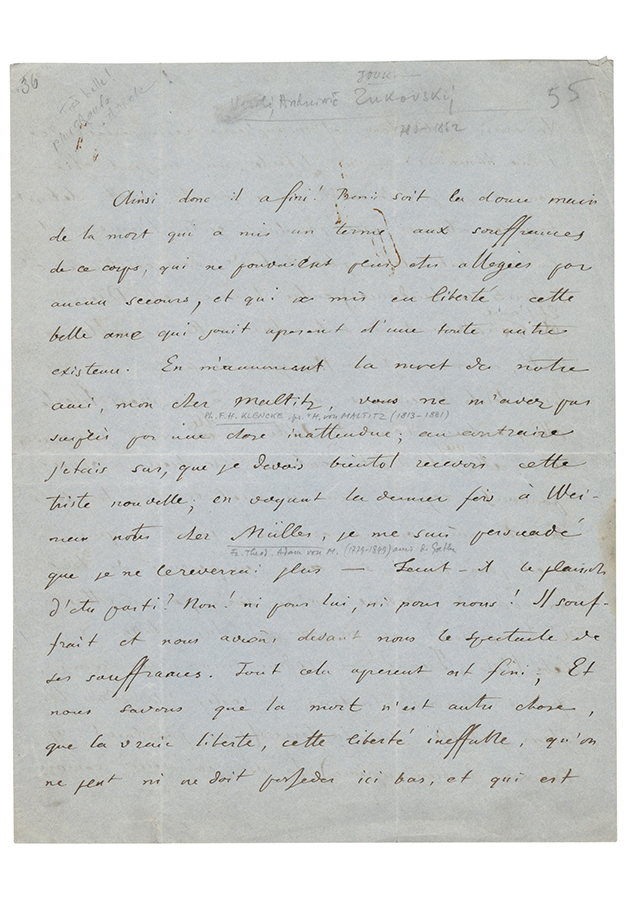 36
55
Très belle!
JOUSKI —
Andreevič Žukovskij
1783–1852
Ainsi donc il a fini! Benie soit la douce main
de la mort qui a mis un terme aux souffrances
de ce corps, qui ne pouvaient plus etre allegées par
aucun secours, et qui a mis en liberté cette
belle ame qui jouit apresent d'une toute autre
existence. En m'annoncant la mort de notre
ami, mon cher Maltitz, vous ne m'avez pas
Ps. F.H. KLENCKE, ps. H. von MALTITZ (1813–1881)
surpris par une chose inattendue; au contraire
j'etais sur, que je devais bientot recevoir cette
triste nouvelle; en voyant la derniere fois à Wei-
mar notre cher Müller, je me suis persuadé
Fr. Theod. Adam von M. (1779–1849) amis d. Goethe
que je ne le reverrai plus — Faut-il le plaindre
d'etre parti? Non! ni pour lui, ni pour nous! Il souf-
frait et nous avions devant nous le spectacle de
ses souffrances. Tout cela apresent est fini, Et
nous savons que la mort n'est autre chose,
que la vraie liberte, cette liberté ineffable, qu'on
ne peut ni ne doit posseder ici bas, et qui est